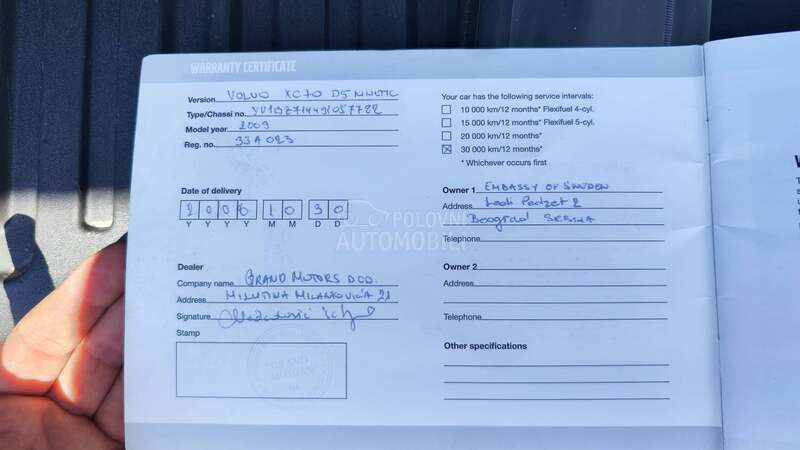 WARRANTY CERTIFICATE
Version VOLVO XC70 D5 KINETIC
Type/Chassi no. YV1BZ714491057722
Model year 2009
Reg. no. 33A023
Date of delivery
2 0 0 6 1 0 3 0
Y Y Y Y M M D D
Dealer
Company name GRAND MOTORS DOO
Address MILUTINA MILANKOVIĆA 21
Signature
Stamp
GRAND
MOTORS
Your car has the following service intervals:
10 000 km/12 months* Flexifuel 4-cyl.
15 000 km/12 months* Flexifuel 5-cyl.
20 000 km/12 months*
30 000 km/12 months*
* Whichever occurs first
Owner 1 EMBASSY OF SWEDEN
Address Ledi Pedzet 2
Beograd SERBIA
Telephone
Owner 2
Address
Telephone
Other specifications
POLOVNI
AUTOMOBILI